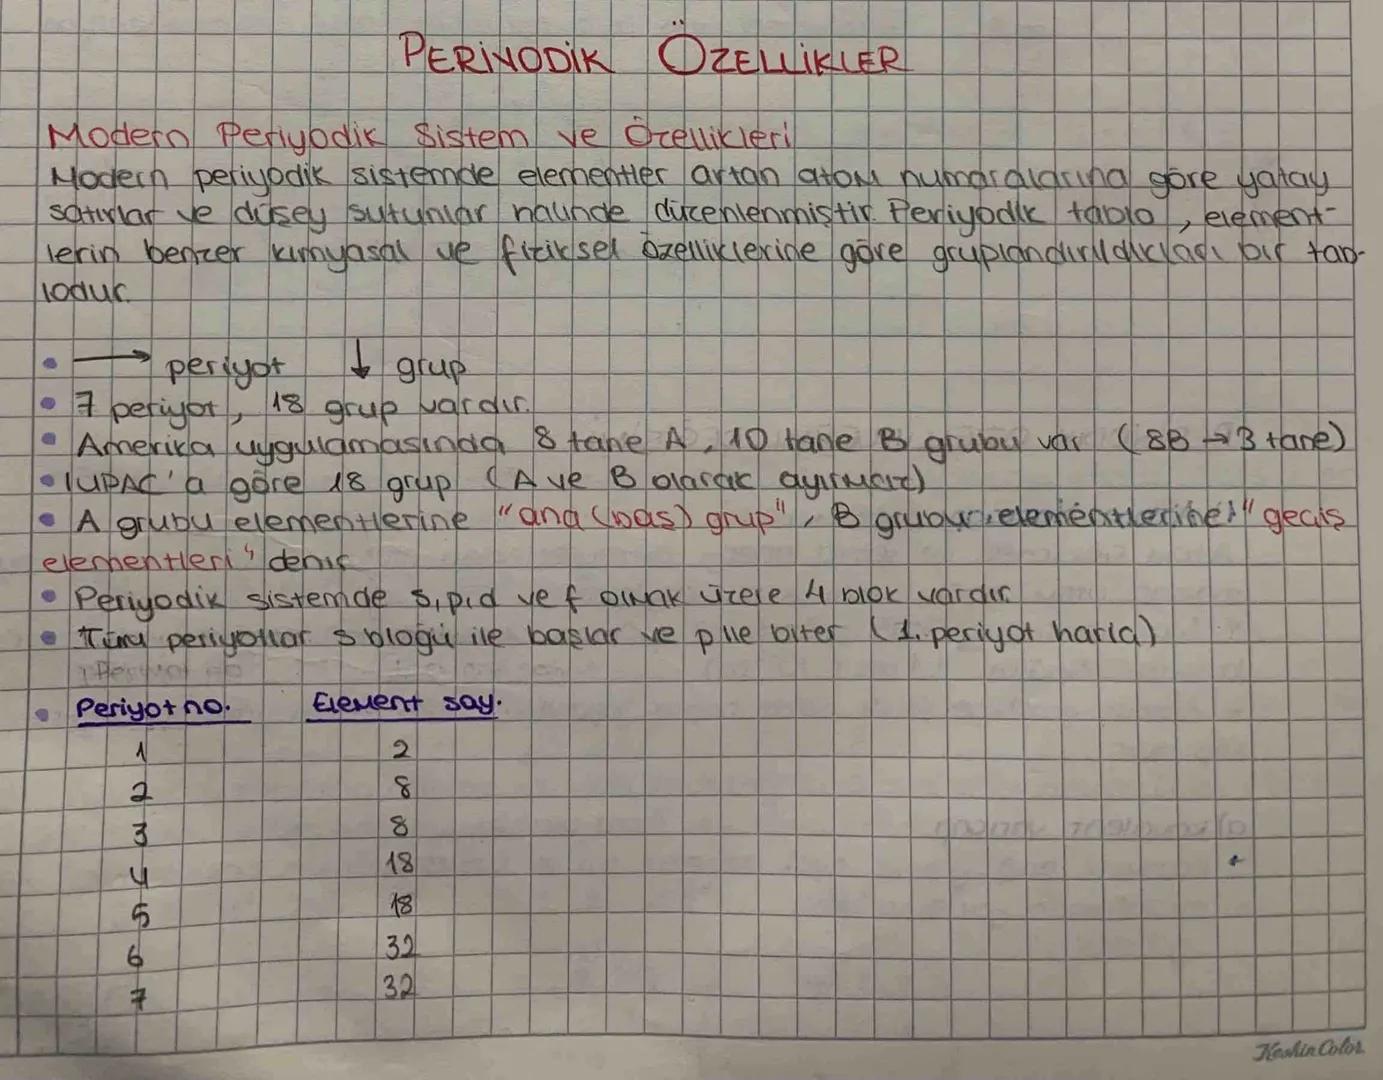 PERİYODİK ÖZELLİKLER
Modern Periyodik Sistem ve Özellikleri
Modern periyodik sistemde elementler artan atom numaralarına göre yatay
satırlar ve düşey sütunlar halinde düzenlenmiştir. Periyodik tablo, element-
lerin benzer kimyasal ve fiziksel özelliklerine göre gruplandırıldıkları bir tab-
lodur.
• → periyot ↓ grup
• 7 periyot, 18 grup vardır.
• Amerika uygulamasında 8 tane A, 10 tane B grubu var (8B → 3 tane)
• IUPAC'a göre 18 grup (A ve B olarak ayırmaz)
• A grubu elementlerine "ana (baş) grup", B grubu elementlerine "geçiş
elementleri" denir
• Periyodik sistemde s, p, d ve f olmak üzere 4 blok vardır.
• Tüm periyotlar s bloğu ile başlar ve p ile biter (1. periyot hariç)
• Periyot no. Element say.
1 2
2 8
3 8
4 18
5 18
6 32
7 32
Keskin Color